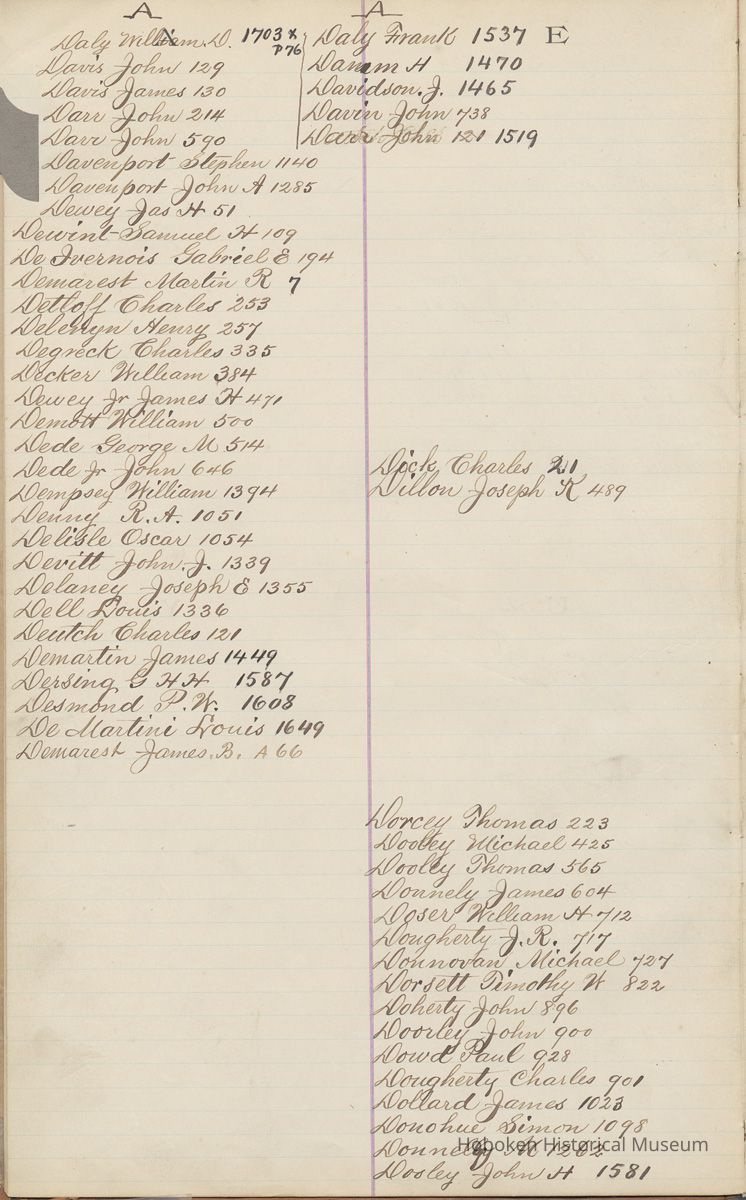 A
Daly William D. 1703 x
P76
Davis John 129
Davis James 130
Darr John 214
Darr John 590
Davenport Stephen 1140
Davenport John A 1285
Dewey Jas H 51
Dewint Samuel H 109
De Ivernois Gabriel E 194
Demarest Martin R 7
Detloff Charles 253
Henry 257
Degreck Charles 335
Decker William 384
Dewey Jr James H 471
Demott William 500
Dede George M 514
Dede Jr John 646
Dempsey William 1394
Denny R. A. 1051
Delisle Oscar 1054
Devitt John. J. 1339
Delaney Joseph E 1355
Dell Louis 1336
Deutch Charles 121
Demartin James 1449
Dersing G H H 1587
Desmond P. W. 1608
De Martini Louis 1649
Demarest James. B. A 66
A
Daly Frank 1537 E
Damm H 1470
Davidson. J. 1465
Davin John 738
John 121 1519
Dick Charles 21
Dillon Joseph K 489
Dorcey Thomas 223
Dooley Michael 425
Dooley Thomas 565
Donnely James 604
Doser William H 712
Dougherty J. R. 717
Donnovan Michael 727
Dorsett Timothy W 822
Doherty John 896
Doorley John 900
Dowd Paul 928
Dougherty Charles 901
Dollard James 1023
Donohue Simon 1098
Hoboken Historical Museum
Dosley John H 1581